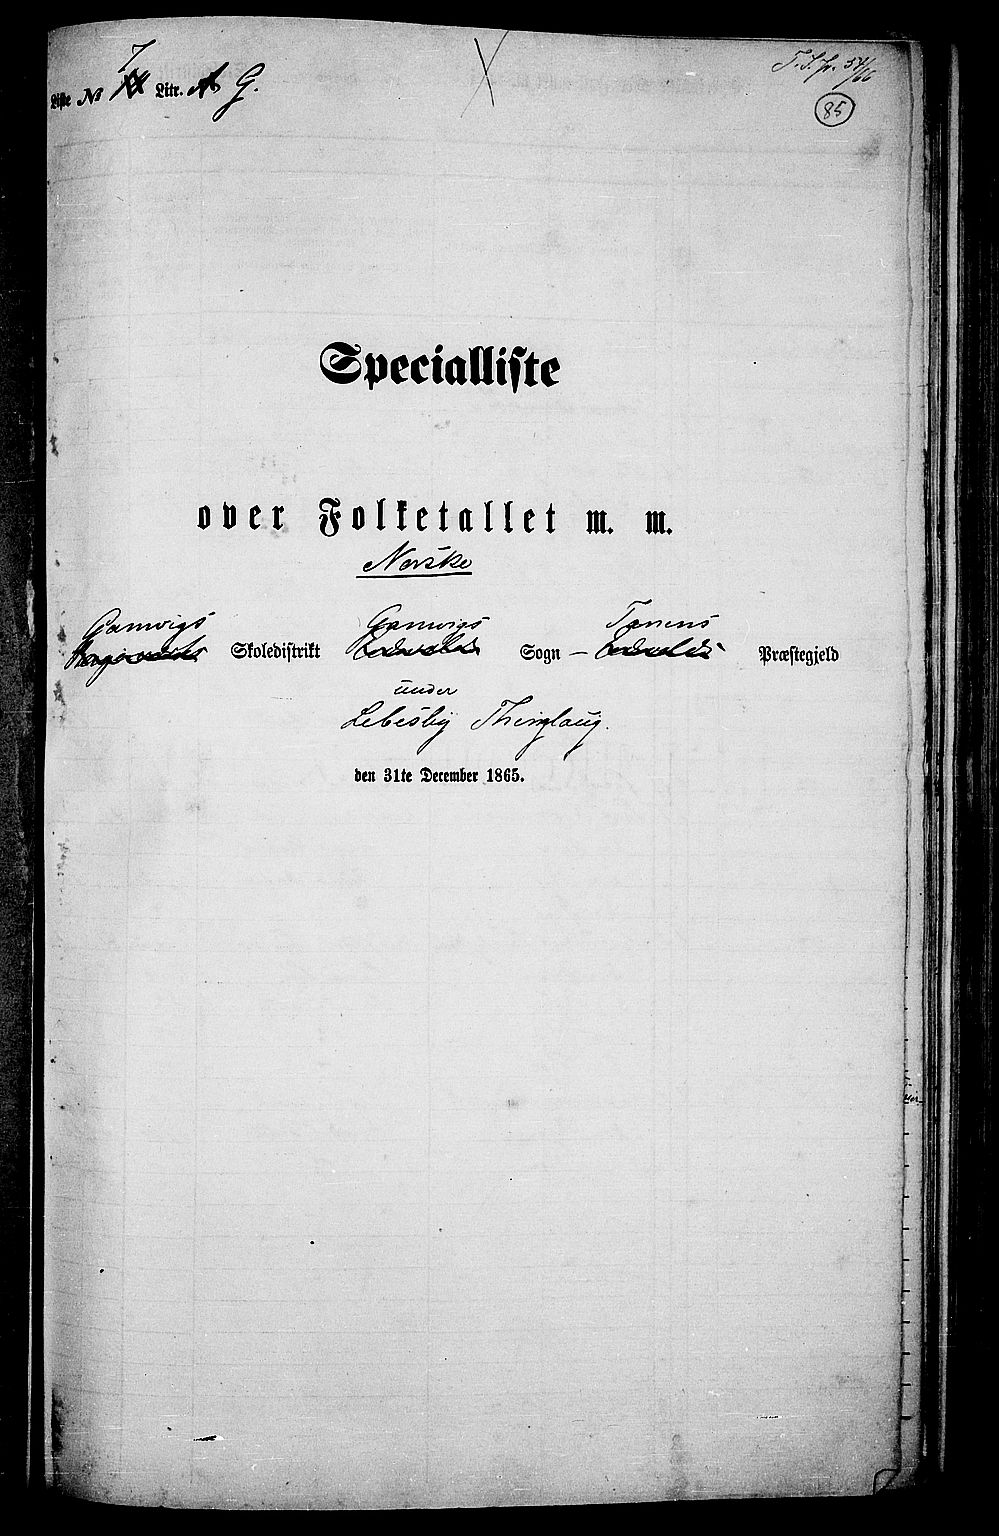 T. S. fr. 54/66
7
Liste No Litr. G.
85
Specialliste
over Folketallet m. m.
Norske
Gamvigs Gamvigs Tanens
Skoledistrikt Sogn — Præstegjeld
under
Lebesby Thinglaug.
den 31te December 1865.